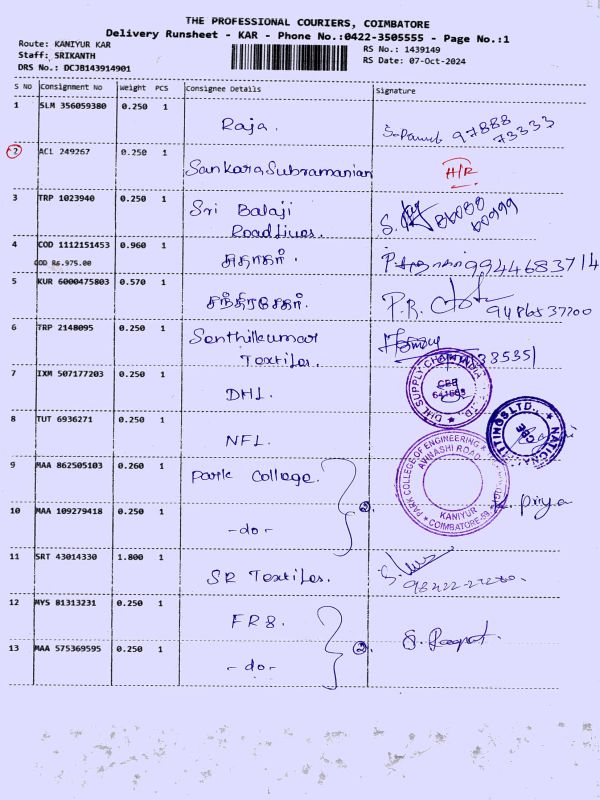 THE PROFESSIONAL COURIERS, COIMBATORE
Delivery Runsheet - KAR - Phone No.:0422-3505555 - Page No.:1
Route: KANIYUR KAR
Staff: SRIKANTH
DRS No.: DCJB143914901
RS No.: 1439149
RS Date: 07-Oct-2024
S No Consignment No Weight PCS Consignee Details Signature
1 SLM 356059380 0.250 1 Raja. 97888 73333
2 ACL 249267 0.250 1 Sankara Subramanian H/R
3 TRP 1023940 0.250 1 Sri Balaji
Road Lines.
4 COD 1112151453 0.960 1 சுதாகர். 9944683714
COD Rs.975.00
5 KUR 6000475803 0.570 1 சந்திரசேகர். P.R. 9486537700
6 TRP 2148095 0.250 1 Senthilkumar
Textiles. 335351
7 IXM 507177203 0.250 1 DHL.
DHL SUPPLY CHAIN INDIA
8 TUT 6936271 0.250 1 NFL.
9 MAA 862505103 0.260 1 Park College.
PARK COLLEGE OF ENGINEERING
AVINASHI ROAD
KANIYUR
COIMBATORE-59
10 MAA 109279418 0.250 1 -do- 2 K. Priya
11 SRT 43014330 1.800 1 SR Textiles.
12 MYS 81313231 0.250 1 FR8.
13 MAA 575369595 0.250 1 -do- 2